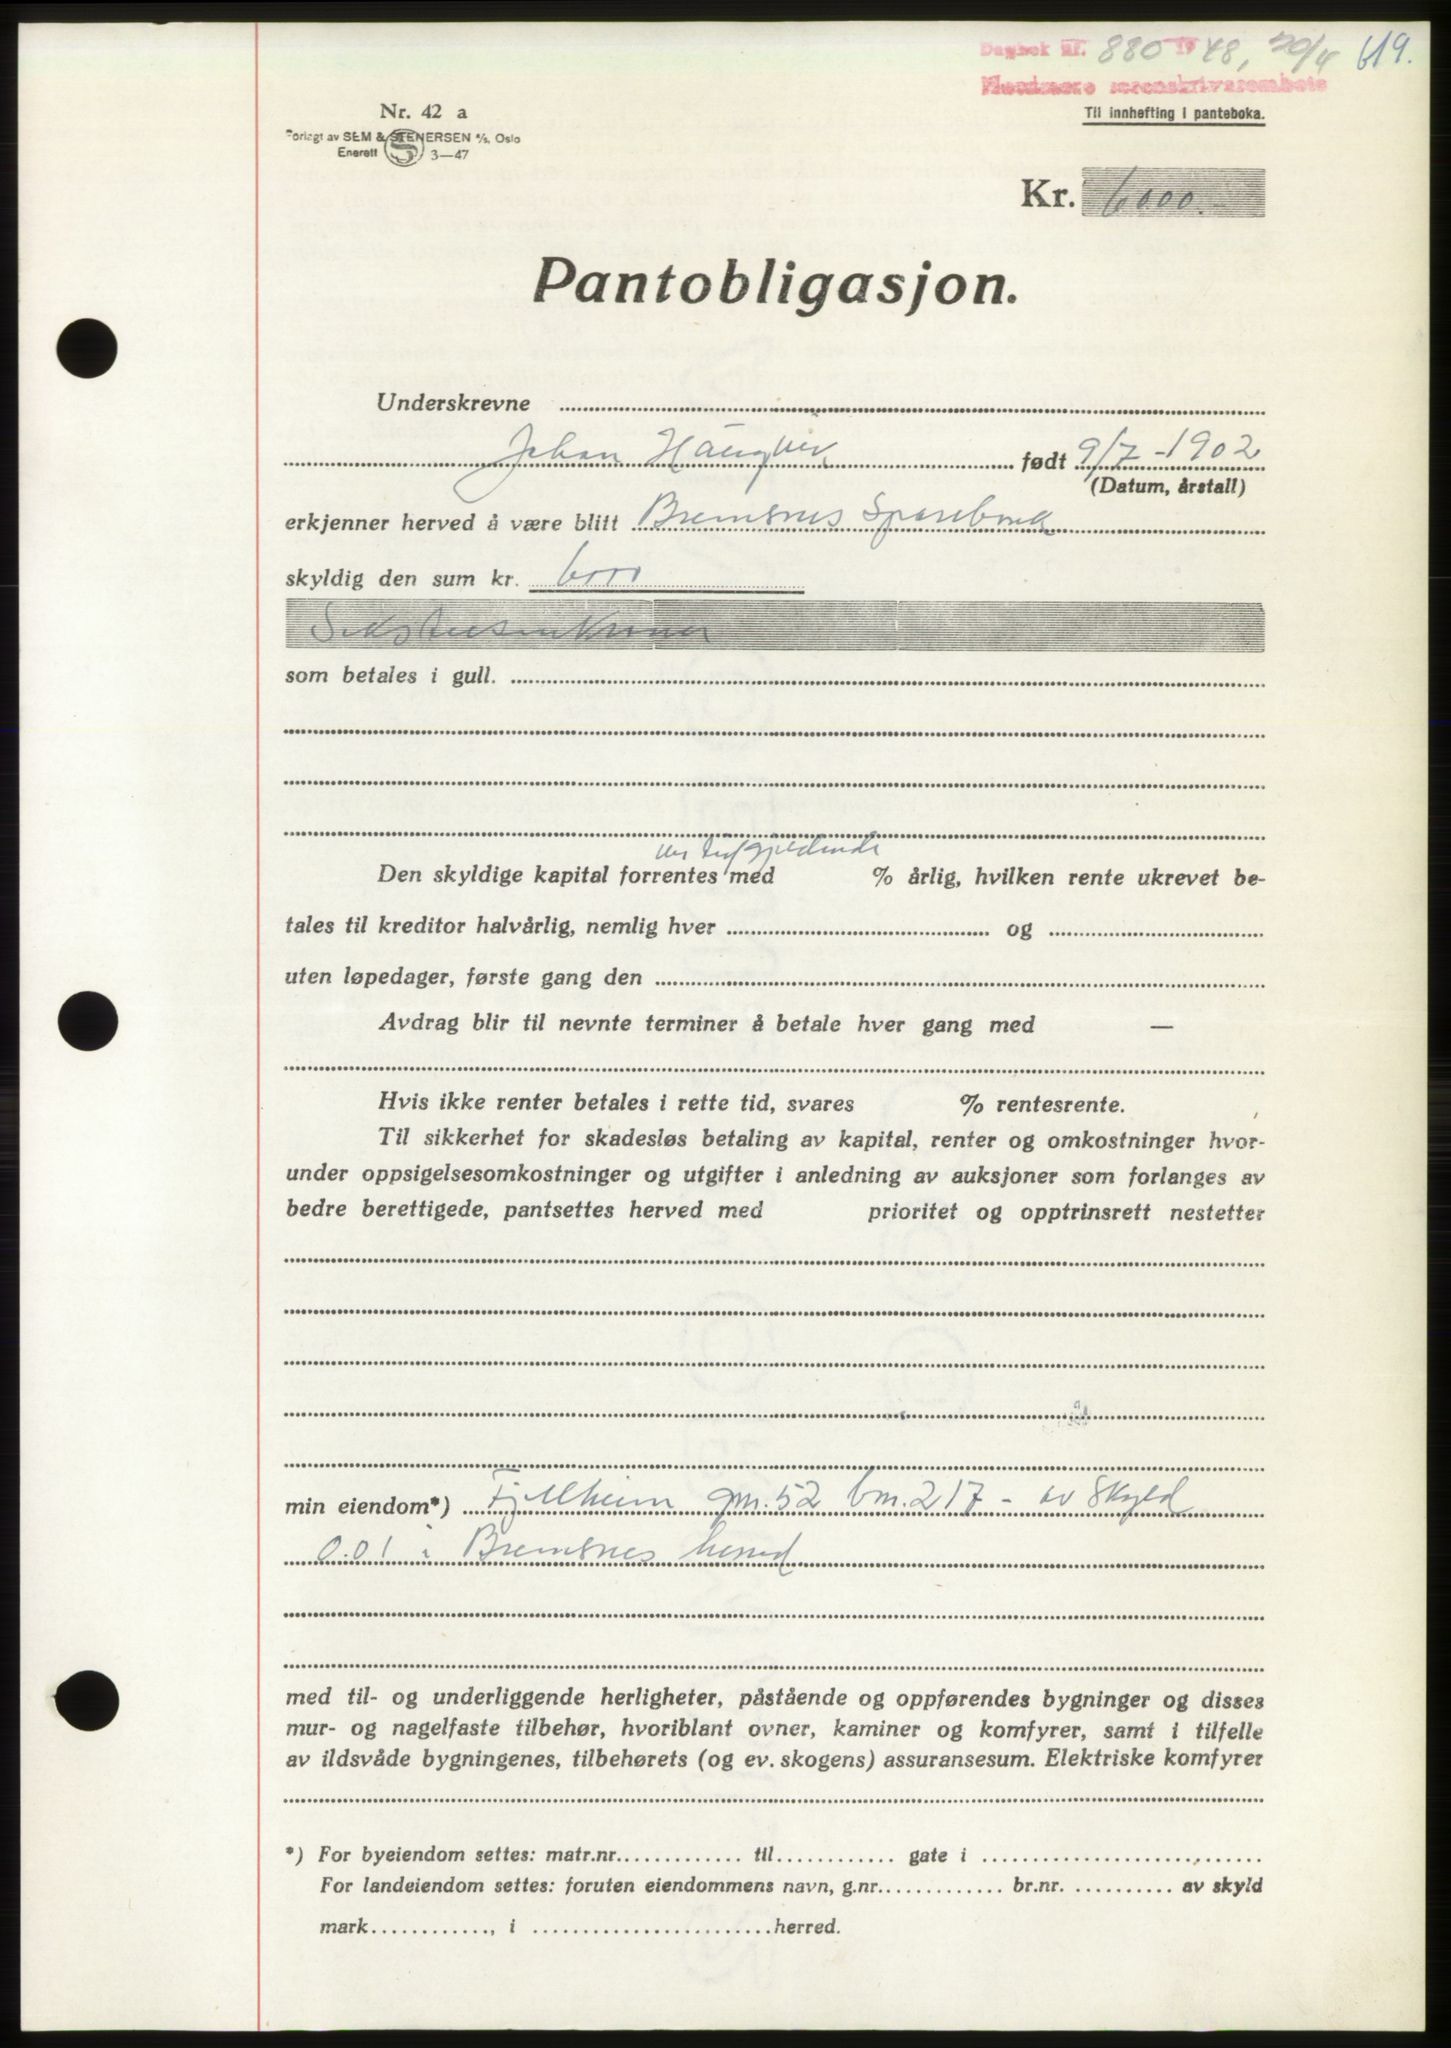 Dagbok nr. 880 1948, 20/4 619.
Nordmøre sorenskriverembete
Nr. 42 a
Til innhefting i panteboka.
Forlagt av SEM & STENERSEN A/S, Oslo
Enerett S 3—47
Kr. 6000.-
Pantobligasjon.
Underskrevne
Johan født 9/7-1902
(Datum, årstall)
erkjenner herved å være blitt Bremsnes Sparebank
skyldig den sum kr. 6000
Sekstusenkroner
som betales i gull.
gjeldende
Den skyldige kapital forrentes med % årlig, hvilken rente ukrevet be-
tales til kreditor halvårlig, nemlig hver og
uten løpedager, første gang den
Avdrag blir til nevnte terminer å betale hver gang med —
Hvis ikke renter betales i rette tid, svares % rentesrente.
Til sikkerhet for skadesløs betaling av kapital, renter og omkostninger hvor-
under oppsigelsesomkostninger og utgifter i anledning av auksjoner som forlanges av
bedre berettigede, pantsettes herved med prioritet og opptrinsrett nestetter
min eiendom*) Fjellheim gnr. 52 bnr. 217 - av skyld
0.01 i Bremsnes herred
med til- og underliggende herligheter, påstående og oppførendes bygninger og disses
mur- og nagelfaste tilbehør, hvoriblant ovner, kaminer og komfyrer, samt i tilfelle
av ildsvåde bygningenes, tilbehørets (og ev. skogens) assuransesum. Elektriske komfyrer
*) For byeiendom settes: matr.nr. til gate i
For landeiendom settes: foruten eiendommens navn, g.nr. br.nr. av skyld
mark , i herred.